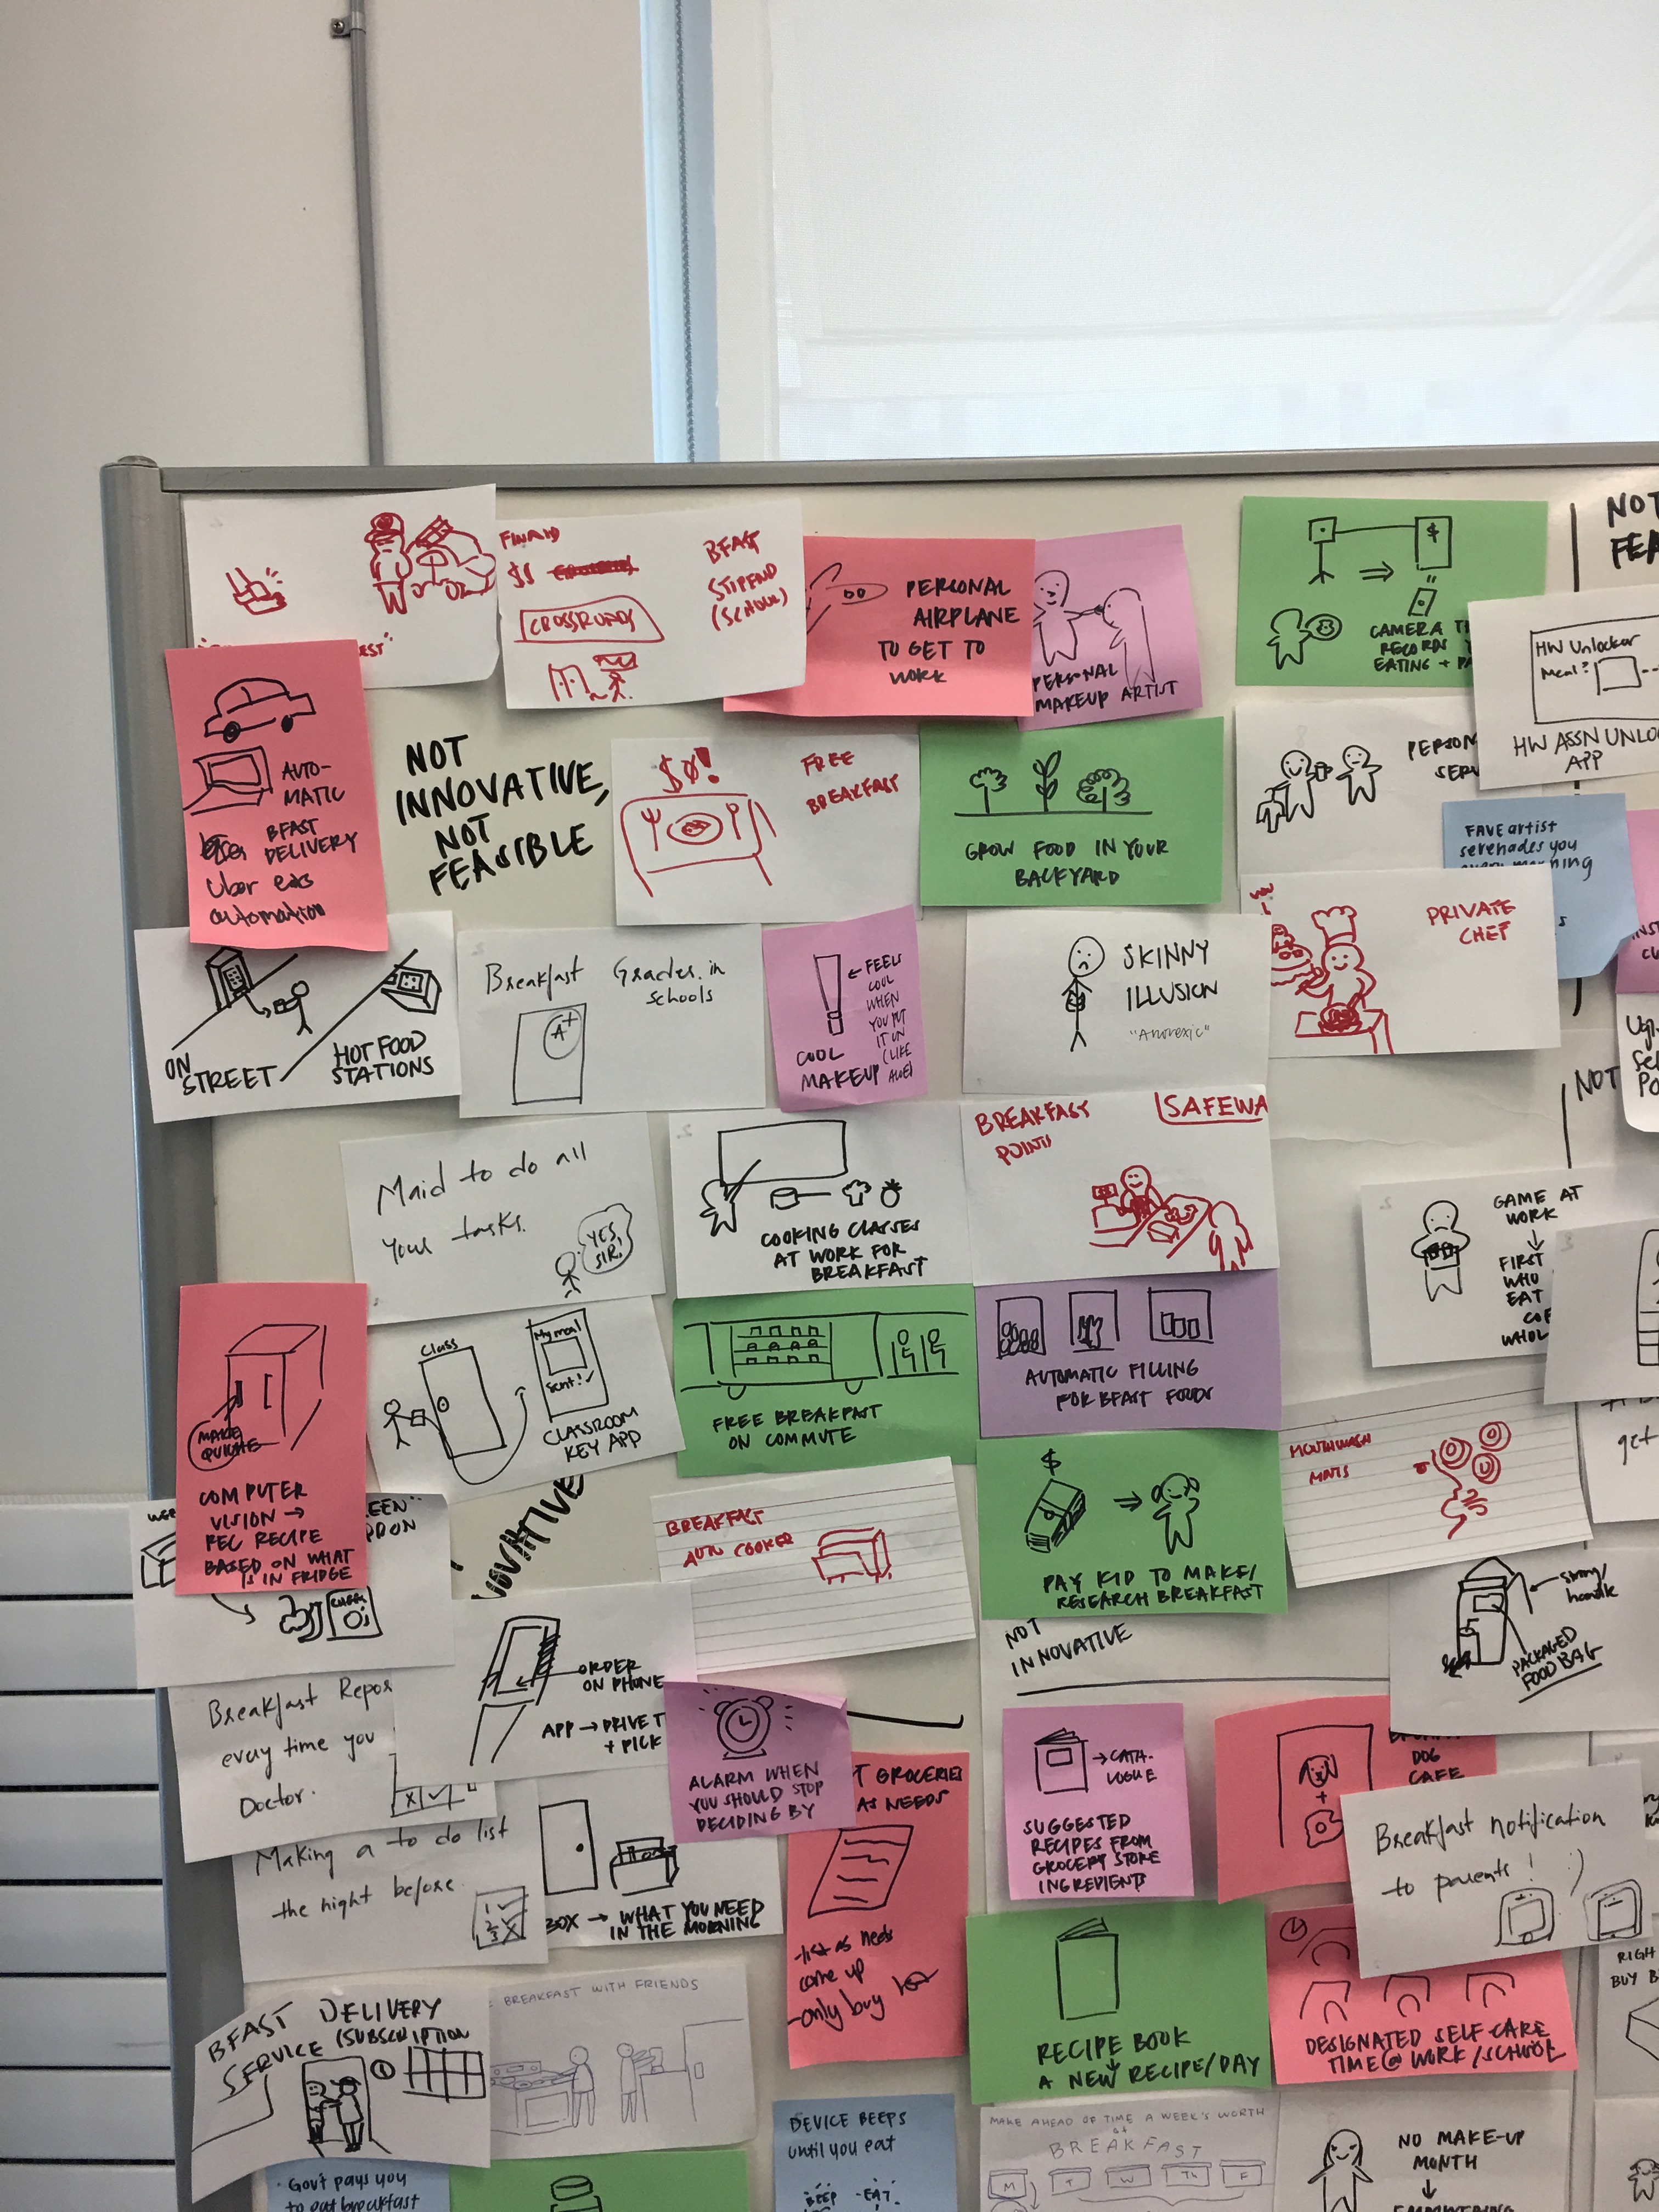 EST"
FINAID
$$
CROSSROADS
BFAST
STIPEND
(SCHOOL)
PERSONAL
AIRPLANE
TO GET TO
WORK
PERSONAL
MAKEUP ARTIST
$
CAMERA
RECORDS
EATING +
NOT
HW Unlocker
Meal?
HW ASSN
APP
AUTO-
MATIC
BFAST
DELIVERY
Uber eats
automation
NOT
INNOVATIVE,
NOT
FEASIBLE
$0!
FREE
BREAKFAST
GROW FOOD IN YOUR
BACKYARD
FAVE artist
serenades you
every morning
PRIVATE
CHEF
ON
STREET
HOT FOOD
STATIONS
Breakfast Grades in
schools
A+
← FEELS
COOL
WHEN
YOU PUT
IT ON
(LIKE
ALOE)
COOL
MAKEUP
SKINNY
ILLUSION
"Anorexic"
NOT
Maid to do all
your tasks.
YES,
SIR!
COOKING CLASSES
AT WORK FOR
BREAKFAST
BREAKFAST
POINTS
SAFEWA
GAME AT
WORK
↓
FIRST
WHO
EAT
WHOL
MAKE
QUICHE
COMPUTER
VISION →
REC RECIPE
BASED ON WHAT
IS IN FRIDGE
Class
My meal
Sent! ✓
CLASSROOM
KEY APP
FREE BREAKFAST
ON COMMUTE
AUTOMATIC FILLING
FOR BFAST FOODS
get
MOUTHWASH
MINTS
$
PAY KID TO MAKE/
RESEARCH BREAKFAST
BREAKFAST
AUTO COOKER
NOVATIVE
EEN"
NOT
INNOVATIVE
strong/
handle
PACKAGED
FOOD BAG
ORDER
ON PHONE
APP → DRIVE T
+ PICK
Breakfast Repor
every time you
Doctor.
ALARM WHEN
YOU SHOULD STOP
DECIDING BY
T GROCERIES
AS NEEDS
-list as needs
come up
-only buy
→ CATA-
LOGUE
SUGGESTED
RECIPES FROM
GROCERY STORE
INGREDIENTS
DOG
CAFE
+
Breakfast notification
to parents!
Making a to do list
the night before.
1
2
3
BOX → WHAT YOU NEED
IN THE MORNING
RECIPE BOOK
A NEW RECIPE/DAY
DESIGNATED SELF-CARE
TIME @ WORK/SCHOOL
RIGH
BUY B
BFAST DELIVERY
SERVICE (SUBSCRIPTION
BREAKFAST WITH FRIENDS
DEVICE BEEPS
until you eat
BEEP EAT!
MAKE AHEAD OF TIME A WEEK'S WORTH
of
BREAKFAST
M T W TH F
NO MAKE-UP
MONTH
↓
EMPOWERING
Gov't pays you
to eat breakfast